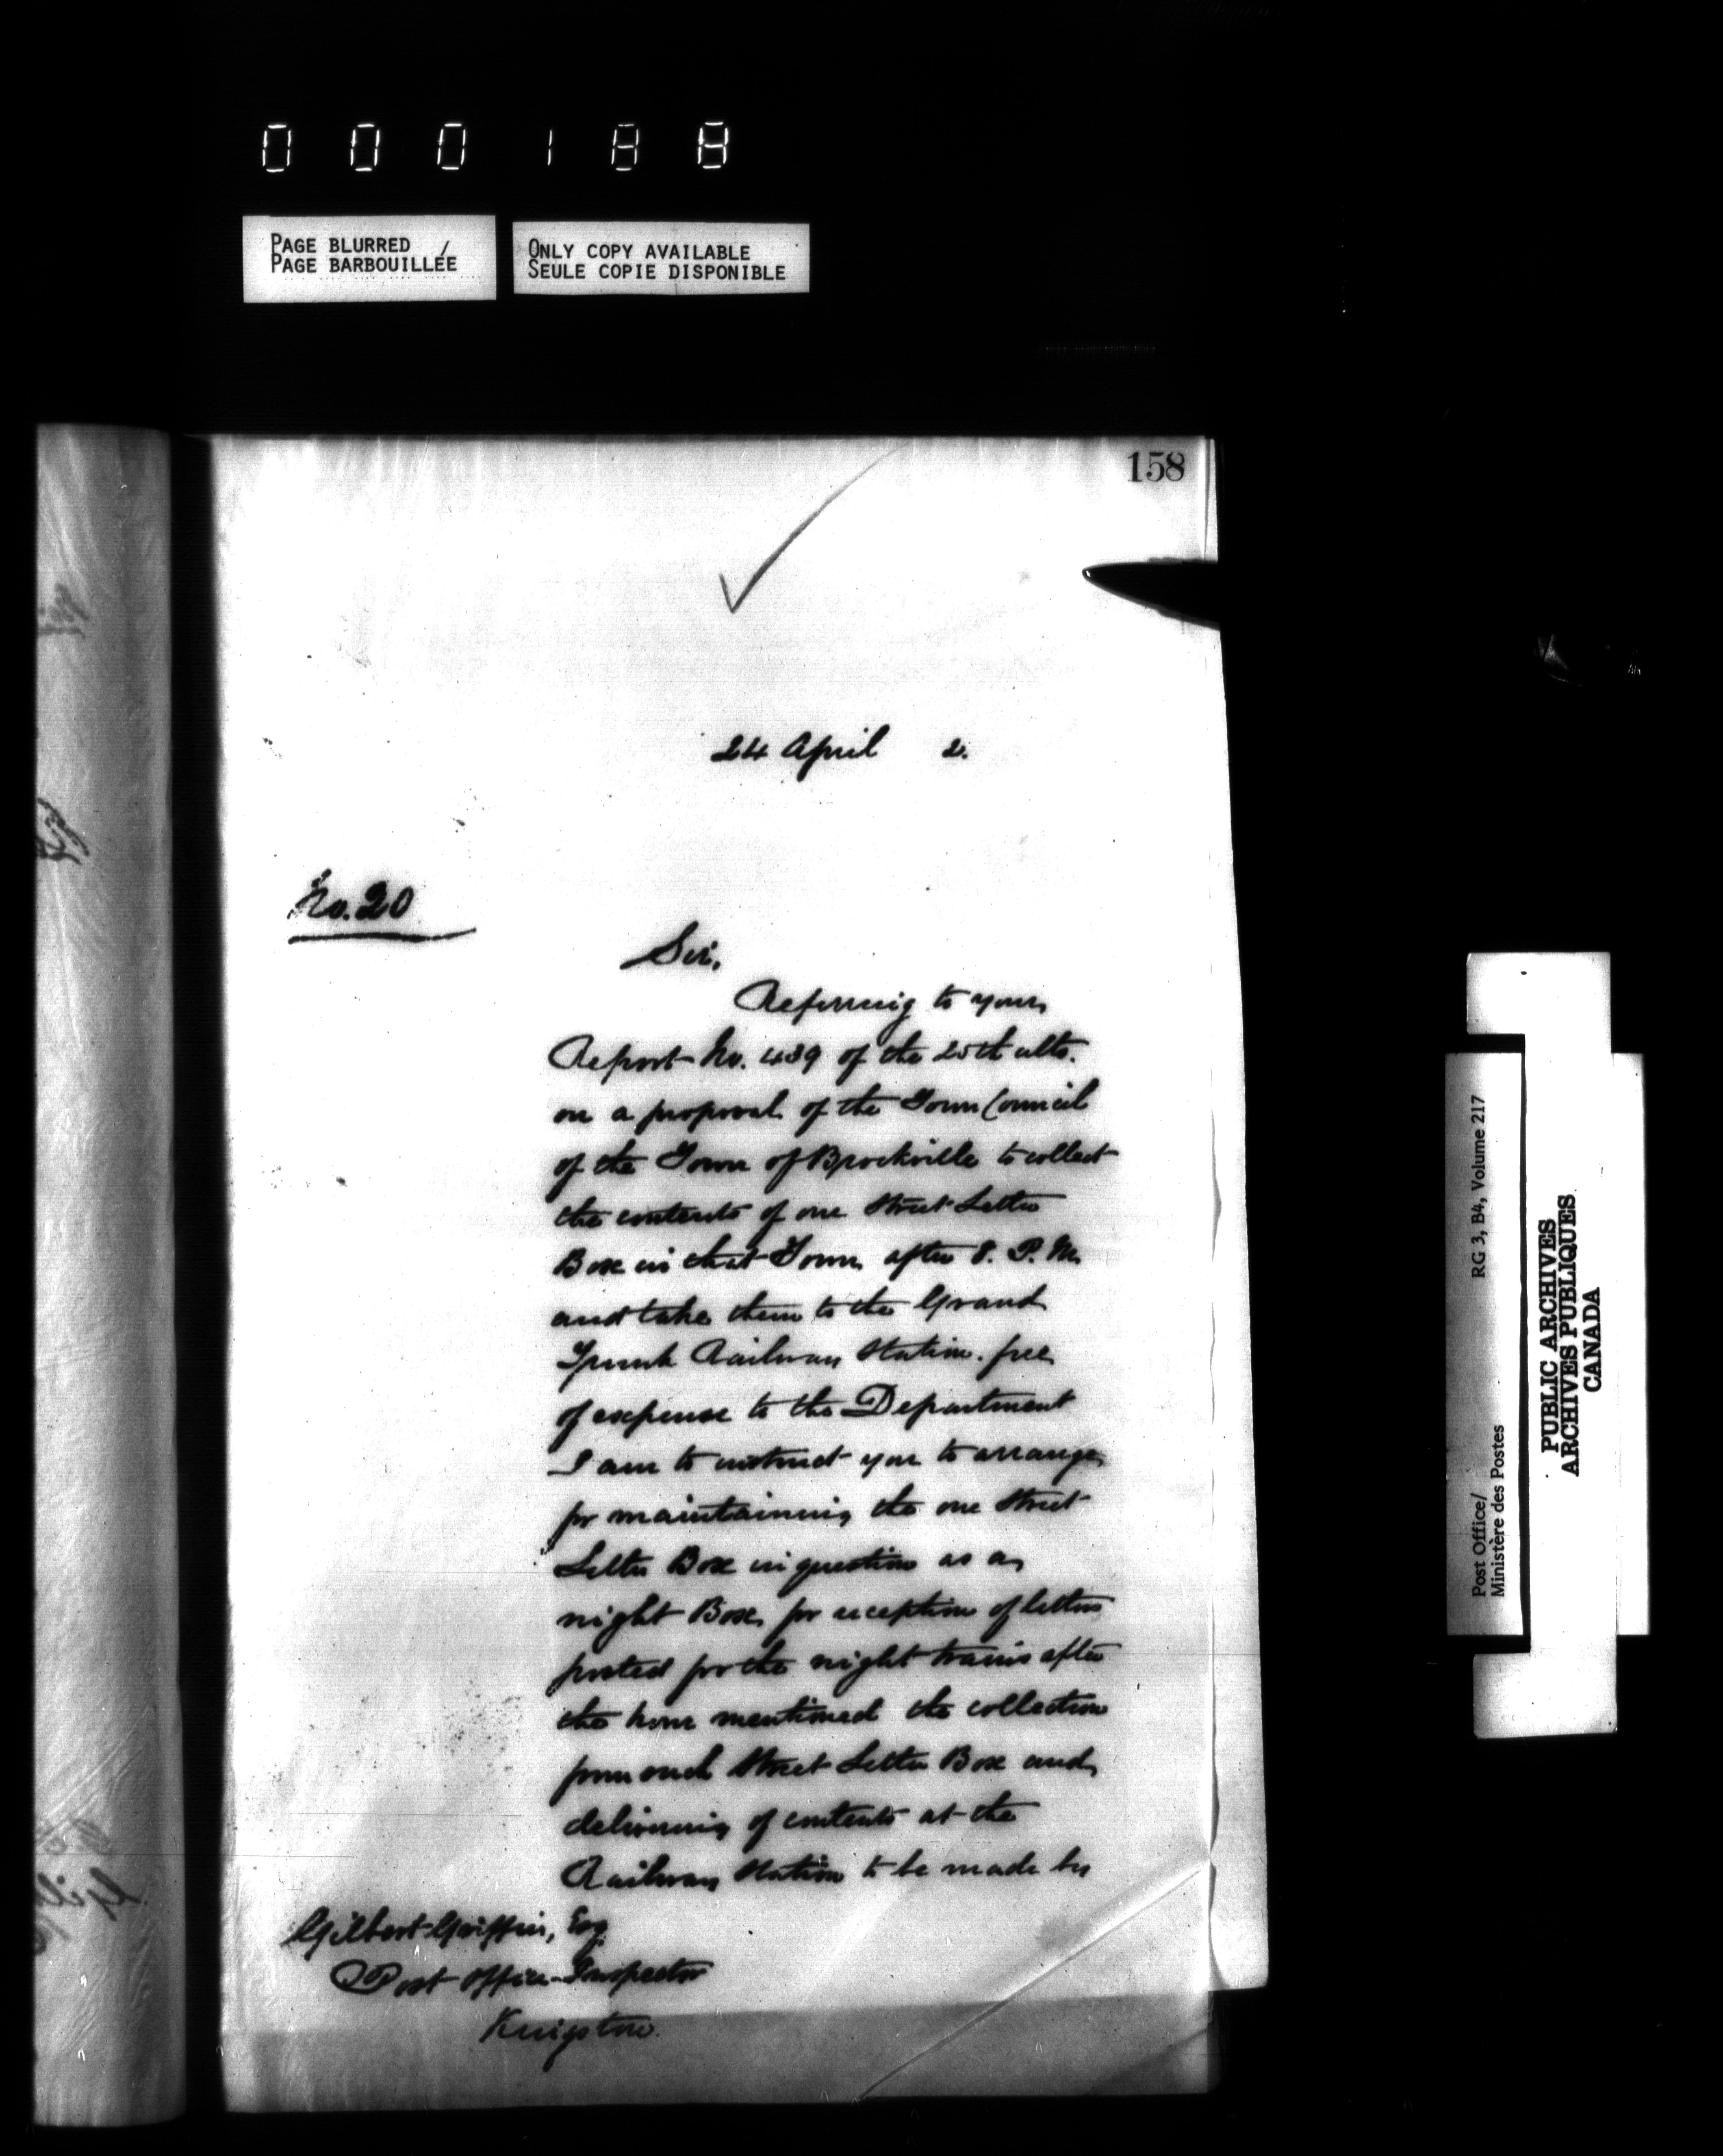 000188
PAGE BLURRED /
PAGE BARBOUILLÉE
ONLY COPY AVAILABLE
SEULE COPIE DISPONIBLE
158
24 April 2.
No. 20
Sir,
Referring to your
Report No. 439 of the 25th ulto.
on a proposal of the Town Council
of the Town of Brockville to collect
the contents of one Street Letter
Box in that Town after 8. P. M.
and take them to the Grand
Trunk Railway Station. free
of expense to the Department
I am to instruct you to arrange
for maintaining the one Street
Letter Box in question as a
night Box, for reception of letters
posted for the night trains after
the hour mentioned the collection
from such Street Letter Box and
delivering of contents at the
Railway Station to be made by
Gilbert Griffin, Esq
Post Office Inspector
Kingston.
Post Office/
Ministère des Postes
RG 3, B4, Volume 217
PUBLIC ARCHIVES
ARCHIVES PUBLIQUES
CANADA